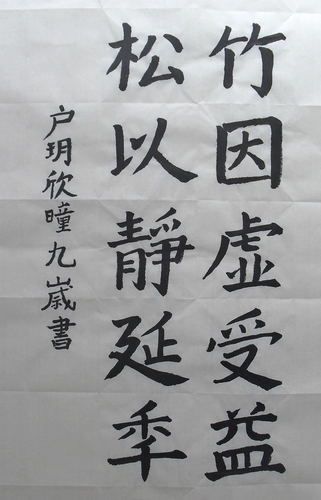 竹因虚受益
松以靜延秊
户玥欣曈九嵗書